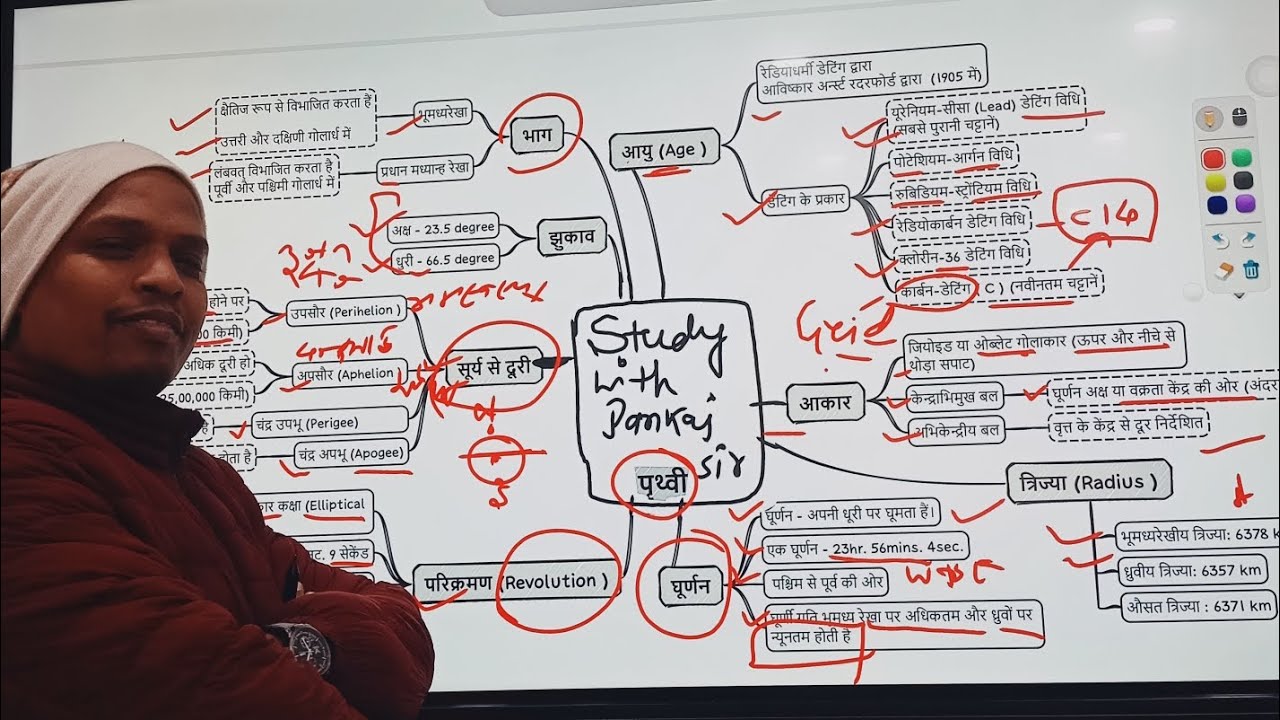 रेडियोधर्मी डेटिंग द्वारा
आविष्कार अर्न्स्ट रदरफोर्ड द्वारा (1905 में)
क्षैतिज रूप से विभाजित करता हैं
उत्तरी और दक्षिणी गोलार्ध में
भूमध्यरेखा
लंबवत् विभाजित करता है
पूर्वी और पश्चिमी गोलार्ध में
प्रधान मध्यान्ह रेखा
भाग
आयु (Age)
डेटिंग के प्रकार
यूरेनियम-सीसा (Lead) डेटिंग विधि
(सबसे पुरानी चट्टानें)
पोटेशियम-आर्गन विधि
रुबिडियम-स्ट्रोंटियम विधि
रेडियोकार्बन डेटिंग विधि
C14
क्लोरीन-36 डेटिंग विधि
कार्बन-डेटिंग C) (नवीनतम चट्टानें
अक्ष - 23.5 degree
धुरी - 66.5 degree
झुकाव
होने पर
किमी)
उपसौर (Perihelion)
अधिक दूरी हो
25,00,000 किमी)
अपसौर (Aphelion
सूर्य से दूरी
है
चंद्र उपभू (Perigee)
होता है
चंद्र अपभू (Apogee)
Study
with
Pankaj
sir
पृथ्वी
Geoid
आकार
जियोइड या ओब्लेट गोलाकार (ऊपर और नीचे से
थोड़ा सपाट)
केन्द्राभिमुख बल
घूर्णन अक्ष या वक्रता केंद्र की ओर (अंदर
अभिकेन्द्रीय बल
वृत्त के केंद्र से दूर निर्देशित
त्रिज्या (Radius)
भूमध्यरेखीय त्रिज्या: 6378
ध्रुवीय त्रिज्या: 6357 km
औसत त्रिज्या : 6371 km
कक्षा (Elliptical
9 सेकेंड
परिक्रमण (Revolution)
घूर्णन
घूर्णन - अपनी धूरी पर घूमता हैं।
एक घूर्णन - 23hr. 56mins. 4sec.
पश्चिम से पूर्व की ओर
घूर्णी गति भूमध्य रेखा पर अधिकतम और ध्रुवों पर
न्यूनतम होती है